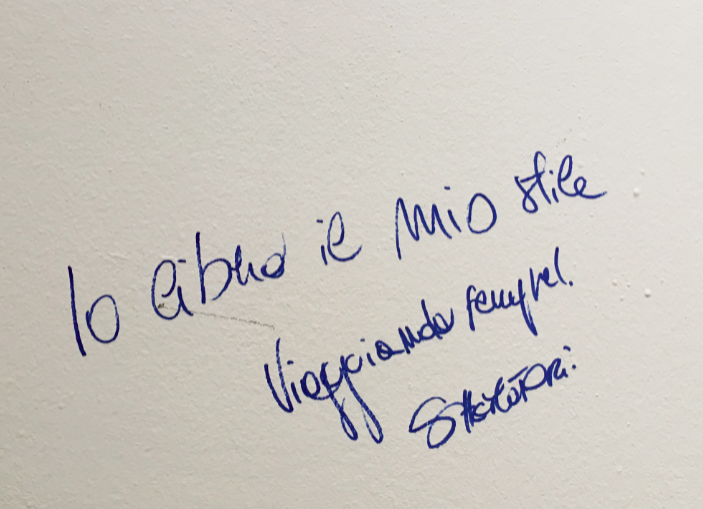 Io libero il mio stile
Viaggiando sempre!